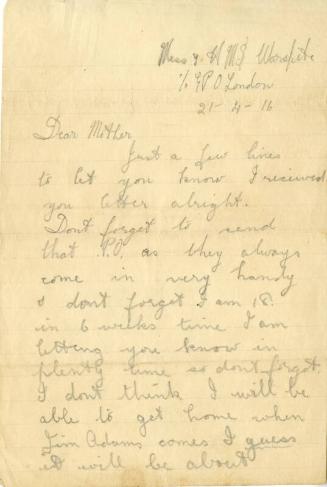 Mess 7 HMS Warspite
c/o GPO London
21-4-16
Dear Mother
Just a few lines
to let you know I received
you letter alright.
Dont forget to send
that P.O. as they always
come in very handy
I dont forget I am 18.
in 6 weeks time I am
letting you know in
plenty time so dont forget.
I dont think I will be
able to get home when
Jim Adams comes I guess
it will be about